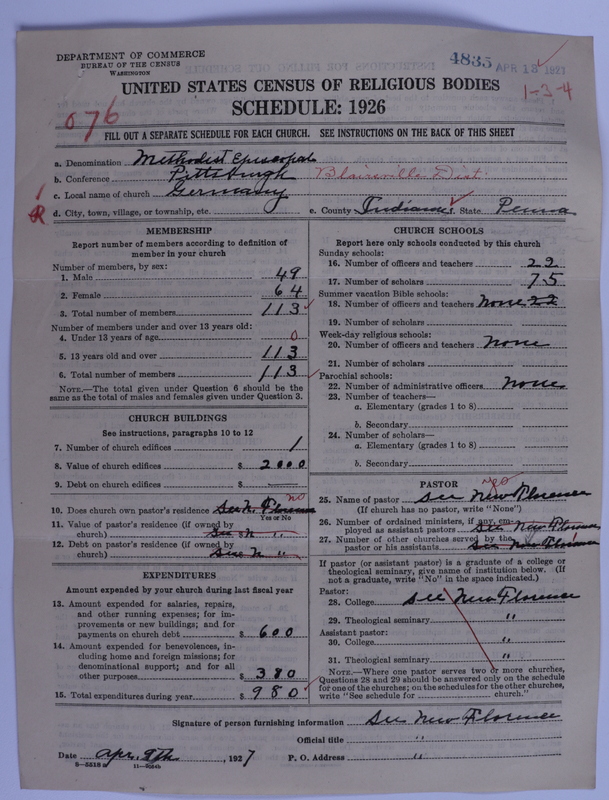 DEPARTMENT OF COMMERCE
BUREAU OF THE CENSUS
WASHINGTON
4835 APR 13 1927
UNITED STATES CENSUS OF RELIGIOUS BODIES
1-3-4
SCHEDULE: 1926
076
FILL OUT A SEPARATE SCHEDULE FOR EACH CHURCH. SEE INSTRUCTIONS ON THE BACK OF THIS SHEET
a. Denomination Methodist Episcopal
b. Conference Pittsburgh Blairsville Dist.
c. Local name of church Germany
R d. City, town, village, or township, etc. e. County Indiana f. State Penna
MEMBERSHIP
Report number of members according to definition of member in your church
Number of members, by sex:
1. Male 49
2. Female 64
3. Total number of members 113
Number of members under and over 13 years old:
4. Under 13 years of age 0
5. 13 years old and over 113
6. Total number of members 113
NOTE.—The total given under Question 6 should be the same as the total of males and females given under Question 3.
CHURCH BUILDINGS
See instructions, paragraphs 10 to 12
7. Number of church edifices 1
8. Value of church edifices $ 2000
9. Debt on church edifices $
10. Does church own pastor's residence See N. Florence no
Yes or No
11. Value of pastor's residence (if owned by
church) See N "
12. Debt on pastor's residence (if owned by
church) See N "
EXPENDITURES
Amount expended by your church during last fiscal year
13. Amount expended for salaries, repairs,
and other running expenses; for im-
provements or new buildings; and for
payments on church debt $ 600
14. Amount expended for benevolences, in-
cluding home and foreign missions; for
denominational support; and for all
other purposes $ 380
15. Total expenditures during year $ 980
CHURCH SCHOOLS
Report here only schools conducted by this church
Sunday schools:
16. Number of officers and teachers 22
17. Number of scholars 75
Summer vacation Bible schools:
18. Number of officers and teachers none 22
19. Number of scholars
Week-day religious schools:
20. Number of officers and teachers none
21. Number of scholars
Parochial schools:
22. Number of administrative officers none
23. Number of teachers—
a. Elementary (grades 1 to 8)
b. Secondary
24. Number of scholars—
a. Elementary (grades 1 to 8)
b. Secondary
PASTOR
25. Name of pastor See New Florence
(If church has no pastor, write "None")
26. Number of ordained ministers, if any, em-
ployed as assistant pastors See New Florence
27. Number of other churches served by the
pastor or his assistants See New Florence
If pastor (or assistant pastor) is a graduate of a college or
theological seminary, give name of institution below. (If
not a graduate, write "No" in the space indicated.)
Pastor:
28. College See New Florence
29. Theological seminary "
Assistant pastor:
30. College "
31. Theological seminary "
NOTE.—Where one pastor serves two or more churches,
Questions 28 and 29 should be answered only on the schedule
for one of the churches; on the schedules for the other churches,
write "See schedule for church."
Signature of person furnishing information See New Florence
Official title "
Date Apr. 9th, 1927 P. O. Address "